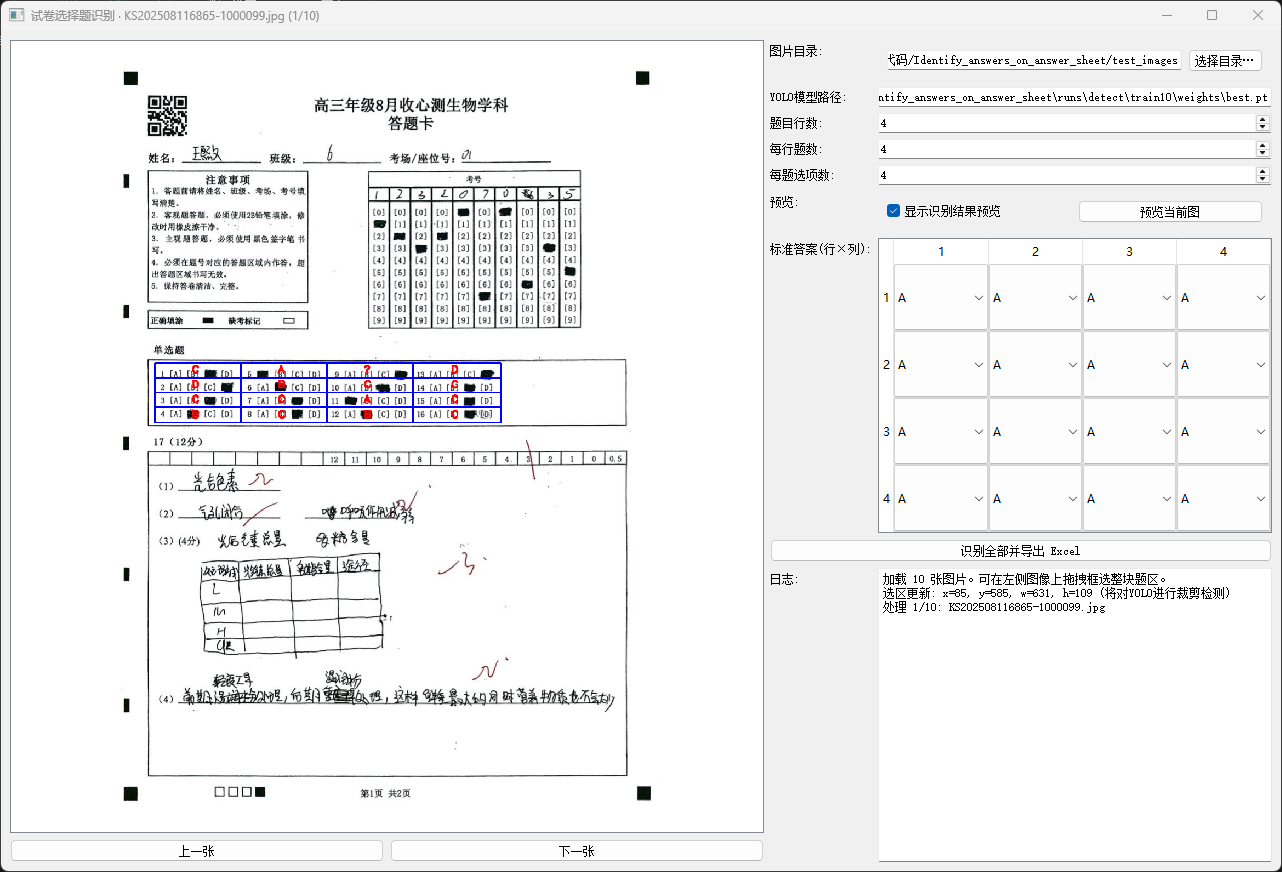 试卷选择题识别 · KS202508116865-1000099.jpg (1/10)
高三年级8月收心测生物学科
答题卡
姓名: 班级: 6 考场/座位号: 01
注意事项
1. 答题前请将姓名、班级、考场、考号填写清楚。
2. 客观题答题，必须使用2B铅笔填涂，修改时用橡皮擦干净。
3. 主观题答题，必须使用黑色签字笔书写。
4. 必须在题号对应的答题区域内作答，超出答题区域书写无效。
5. 保持答卷清洁、完整。
正确填涂 缺考标记
考号
1 2 3 2 0 7 0 3 5
[0] [0] [0] [0] [0] [0] [0] [0]
[1] [1] [1] [1] [1] [1] [1] [1] [1]
[2] [2] [2] [2] [2] [2] [2] [2]
[3] [3] [3] [3] [3] [3] [3] [3]
[4] [4] [4] [4] [4] [4] [4] [4] [4] [4]
[5] [5] [5] [5] [5] [5] [5] [5] [5]
[6] [6] [6] [6] [6] [6] [6] [6] [6]
[7] [7] [7] [7] [7] [7] [7] [7] [7]
[8] [8] [8] [8] [8] [8] [8] [8] [8] [8]
[9] [9] [9] [9] [9] [9] [9] [9] [9] [9]
单选题
1 [A] C [D] 5 A [C] [D] 9 [A] ? [C] 13 [A] D [C]
2 [A] D [C] 6 [A] B [C] [D] 10 [A] C [D] 14 [A] C [D]
3 [A] C [D] 7 [A] C [D] 11 A [C] [D] 15 [A] C [D]
4 [A] B [C] [D] 8 [A] C [D] 12 [A] B [C] [D] 16 [A] C [D]
17 (12分)
12 11 10 9 8 7 6 5 4 3 2 1 0 0.5
(1) 光合色素
(2) 气孔闭合
(3) (4分) 光合色素总量
L
M
H
(4)
第1页 共2页
上一张 下一张
图片目录: 代码/Identify_answers_on_answer_sheet/test_images 选择目录…
YOLO模型路径: ntify_answers_on_answer_sheet\runs\detect\train10\weights\best.pt
题目行数: 4
每行题数: 4
每题选项数: 4
预览: 显示识别结果预览 预览当前图
标准答案(行×列): 1 2 3 4
1 A A A A
2 A A A A
3 A A A A
4 A A A A
识别全部并导出 Excel
日志: 加载 10 张图片。可在左侧图像上拖拽框选整块题区。
选区更新: x=85, y=585, w=631, h=109 (将对YOLO进行裁剪检测)
处理 1/10: KS202508116865-1000099.jpg